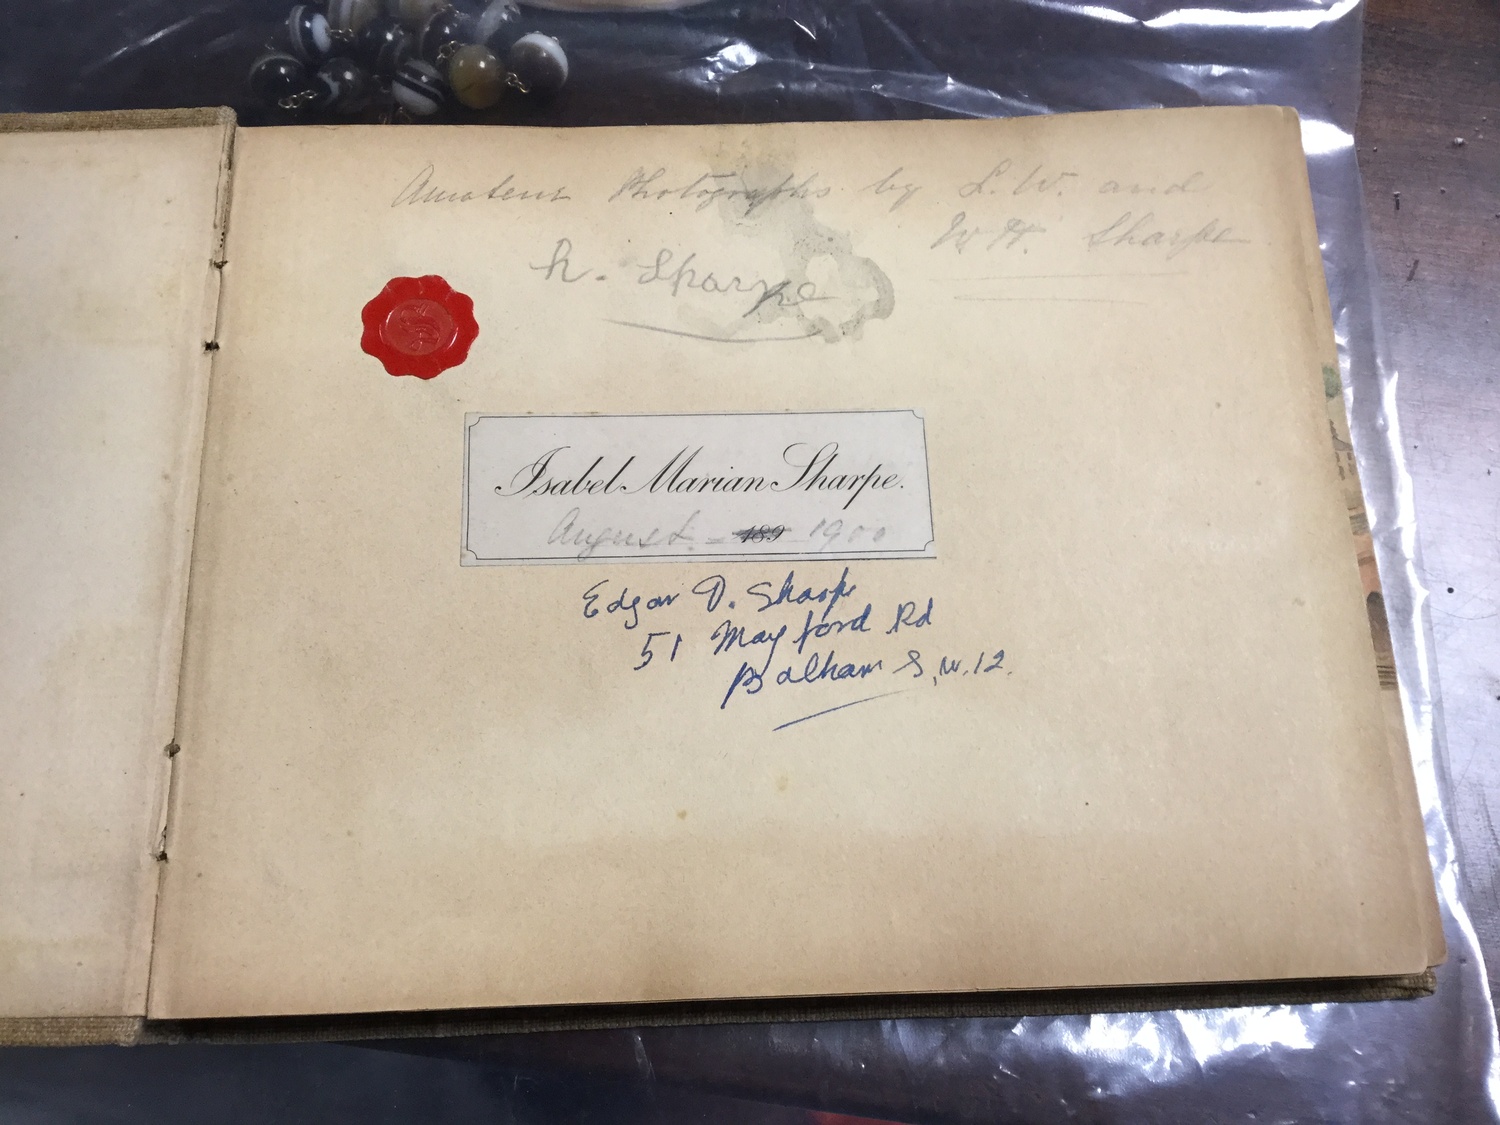 Amateur Photographs by L. W. and
W H. Sharpe
h. Sharpe
Isabel Marian Sharpe.
August. - 189 1900
Edgar D. Sharpe
51 Mayford Rd
Balham S.W.12.